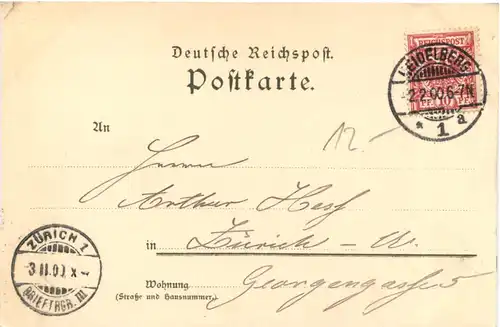 Deutsche Reichspost.
Postkarte.
REICHSPOST
10 PF. 10
HEIDELBERG
2.2.00.6-7N
* 1 a
12.-
An
Herrn
Arthur Hess
in Zürich - W.
Wohnung Georgengasse
(Straße und Hausnummer.)
ZÜRICH 1
BRIEFTRGR. III